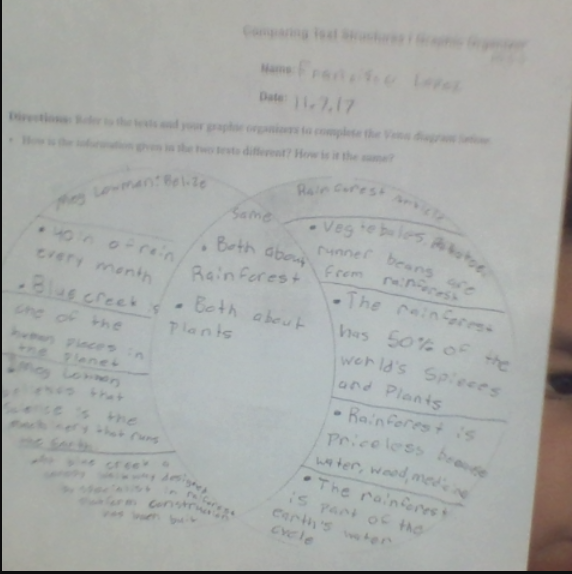 Comparing Text Structures: Graphic Organizer
Name: Francisco Lopez
Date: 11.7.17
Directions: Refer to the texts and your graphic organizers to complete the Venn diagram below.
• How is the information given in the two texts different? How is it the same?
Meg Lowman: Belize
• 40 in of rain
every month
• Blue creek is
one of the
places in
the planet
Meg Lowman
that
Science is the
machinery that runs
the Earth
blue creek a
designed
specialist in rainforest
platform construction
has been built
Same
• Both about
Rainforest
• Both about
Plants
Rainforest article
• Vegtebales,
runner beans are
from rainforest
• The rainforest
has 50% of the
world's Spieces
and Plants
• Rainforest is
Priceless because
water, wood, medicine
• The rainforest
is part of the
earth's water
cycle